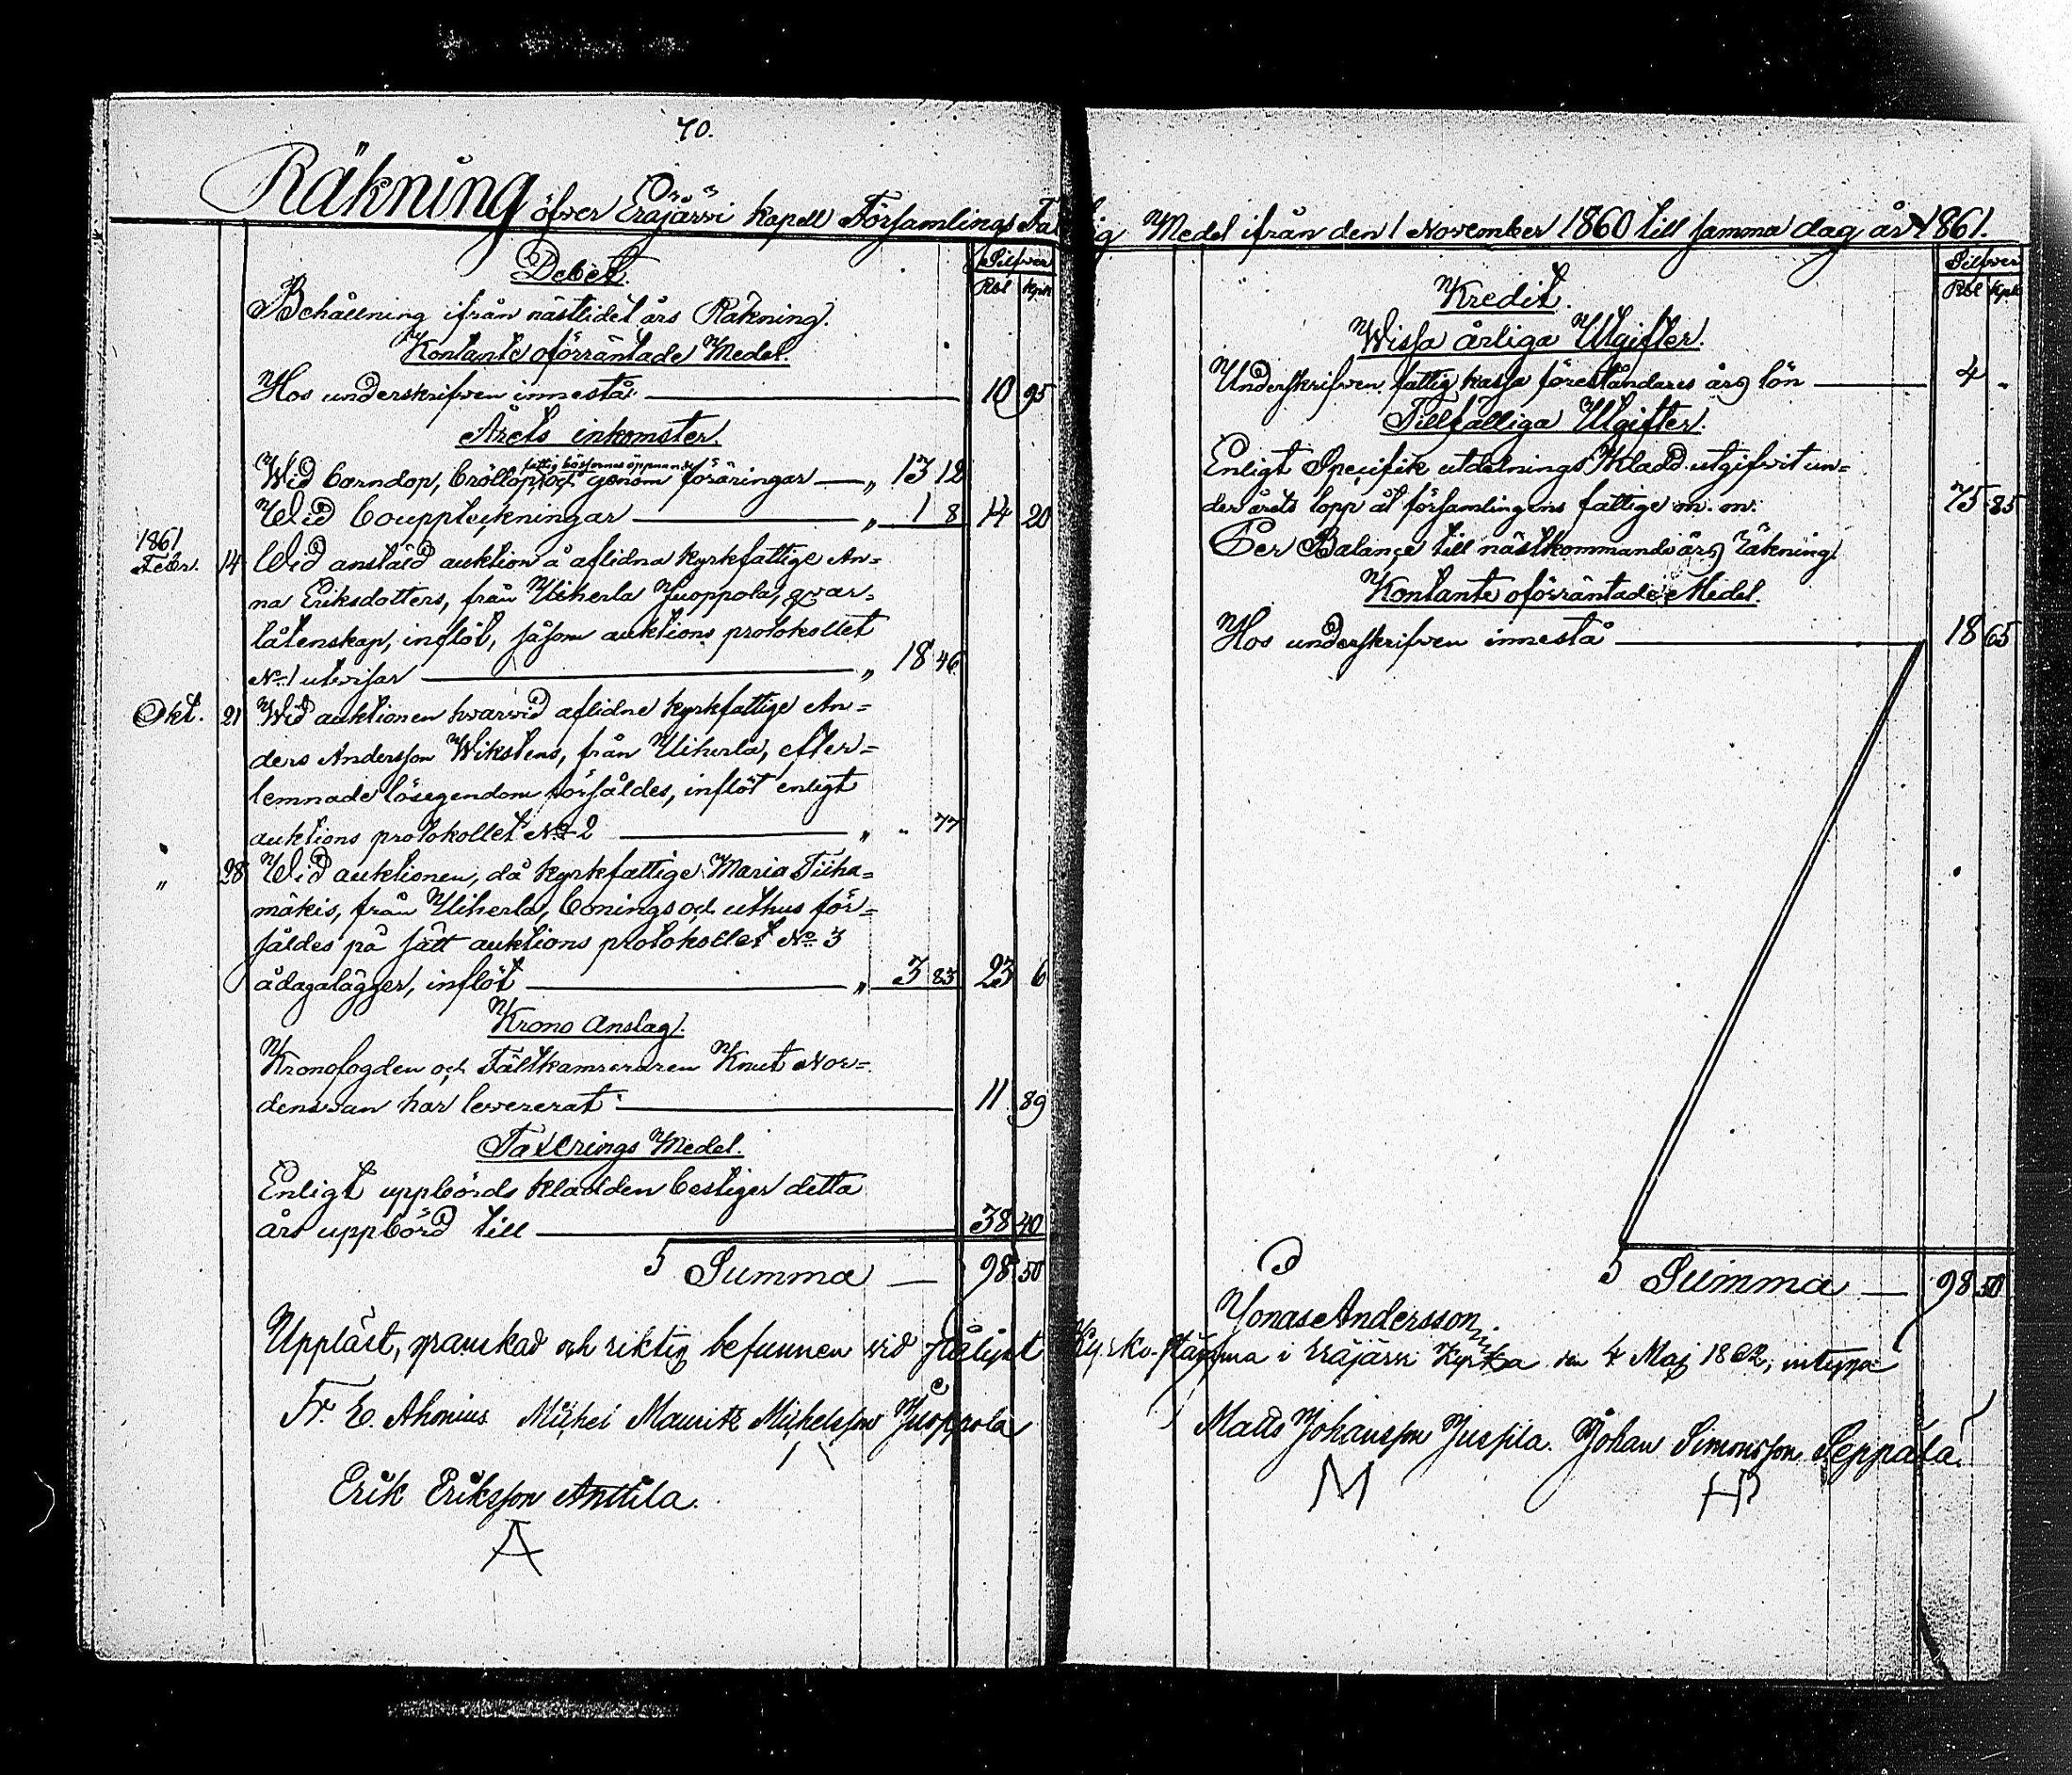 70.
Räkning öfver Eräjärvi kapell Församlings Fattig Medel ifrån den 1 November 1860 till samma dag år 1861.
Debet.
Silfver
Rbl Kpk
Behållning ifrån nästlidet års Räkning.
Kontante oförräntade Medel.
Hos underskrifven innestå 10 95
Årets inkomster.
fattig bössornas öppnande
Wid barndop, bröllop, och genom föräringar — „ 13 12
Wid bouppteckningar — „ 1 8 14 20
1861
Febr. 14 Wid anstäld auktion å aflidna kyrkfattige An=
na Eriksdotters, från Uiherla Juoppola, qvar=
låtenskap, inflöt, såsom auktions protokollet
No 1 utvisar — „ 18 46
Okt. 21 Wid auktionen hvarvid aflidne kyrkfattige An=
ders Andersson Wikstens, från Uiherla, efter=
lemnade lösegendom försåldes, inflöt enligt
auktions protokollet No 2 — „ „ 77
„ 28 Wid auktionen, då kyrkfattige Maria Tiiha=
mäkis, från Uiherla, bonings och uthus för=
såldes på sätt auktions protokollet No 3
ådagalägger, inflöt — „ 3 83 23 6
Krono Anslag.
Kronofogden och Fältkamreraren Knut Nor=
densvan har levererat — 11 89
Taxerings Medel.
Enligt uppbörds kladden bestiger detta
års uppbörd till — 38 40
S Summa — 98 50
Kredit.
Silfver
Rbl Kpk
Wissa årliga Utgifter.
Underskrifven fattig kassa föreståndares års lön — 4 „
Tillfälliga Utgifter.
Enligt Specifik utdelnings Kladd utgifvit un=
der årets lopp åt församlingens fattige m. m. 75 85
Per Balance till nästkommande års räkning.
Kontante oförräntade Medel.
Hos underskrifven innestå — 18 65
S Summa — 98 50
Jonas Andersson
Uppläst, granskad och riktig befunnen vid Kyrko-stämma i Eräjärvi Kyrka den 4 Maj 1862, intyga
Fr. E. Ahonius Michel Mauritz Michelsson Juoppola Matts Johansson Jussila. Johan Simonsson Seppälä.
M
Erik Eriksson Anttila.
A